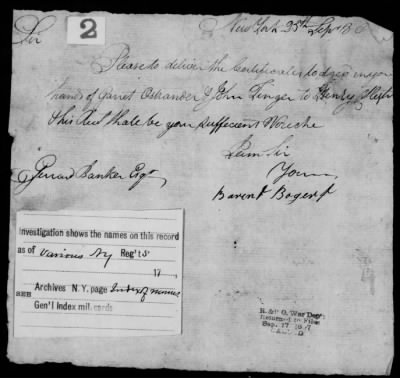 2
New York 25th Sepr
Sir
Please to deliver the Certificates lodged in your
hands of Garret Ostrander & John Finger to Henry
this shall be your sufficient Voucher
I am Sir
Yours
Gerard Banker Esqr
Barent Bogert
Investigation shows the names on this record
as of Various Ny Reg'ts
17
Archives N.Y. page Index of names
SEE
Gen'l Index mil. cards
R. & P. O. War Dep't
Returned to Files
Sep. 17